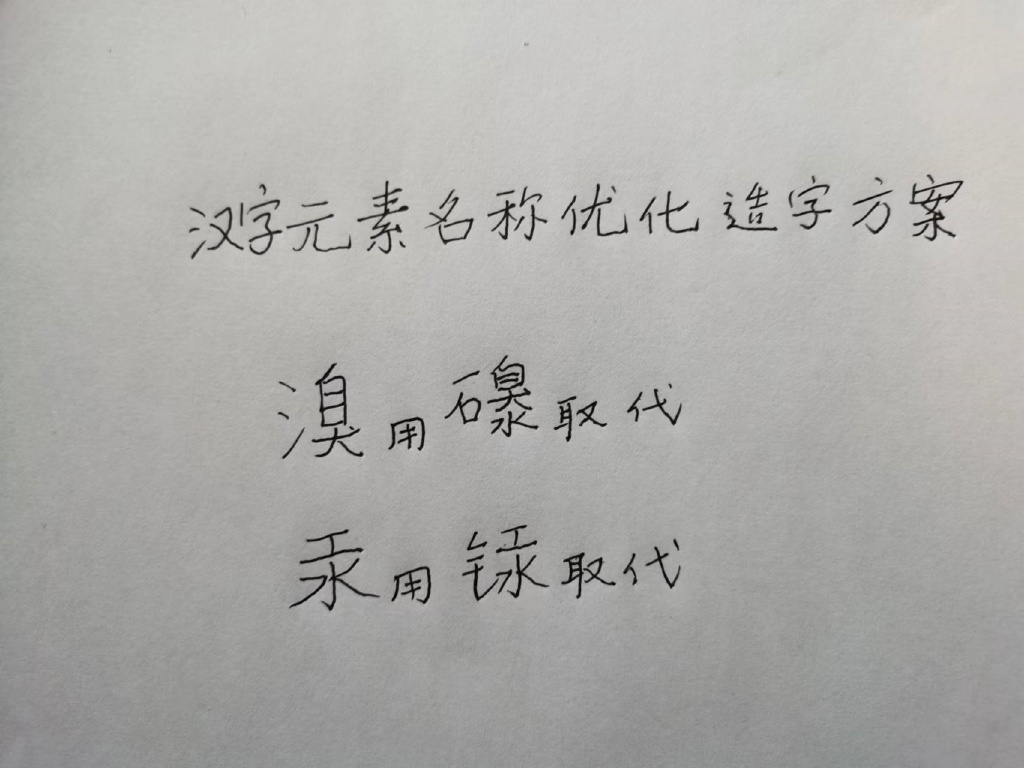 汉字元素名称优化造字方案
溴用取代
汞用取代